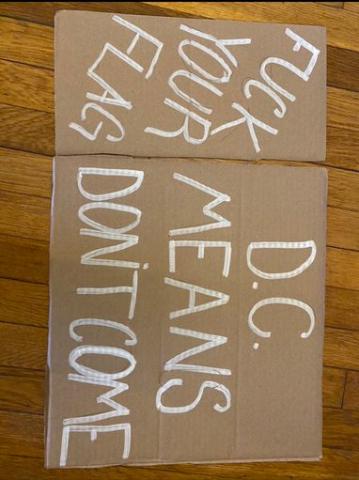 FUCK
YOUR
FLAG
D.C.
MEANS
DON'T COME